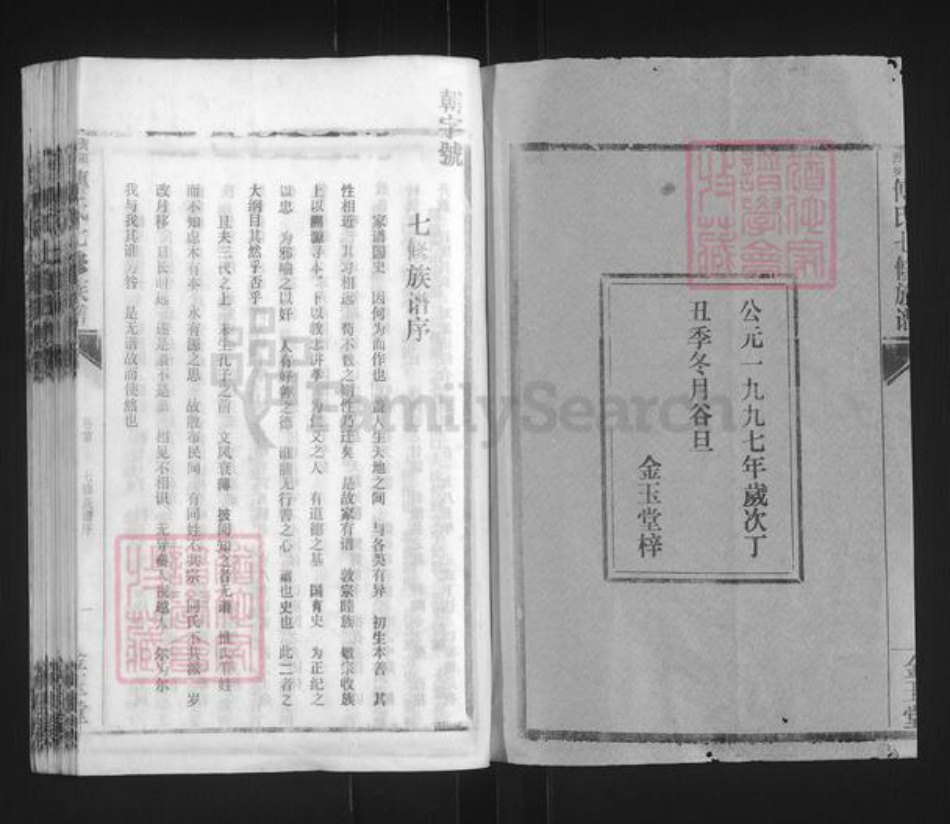 傅氏七修族谱
金玉堂
公元一九九七年歲次丁
丑季冬月谷旦
金玉堂梓
朝字號
七修族谱序
家谱国史 因何为而作也 盖人生天地之间 与各类有异 初生本善 其
性相近 其习相远 苟不教之 性乃迁矣 是故家有谱 敦宗睦族 敬宗收族
上以溯源寻本 下以教 讲孝 为仁义之人 有道德之基 国有史 为正纪之
以忠 为邪喻之以奸 人有好善之德 谁能无行善之心 谱也史也 此二者之
大纲目其然乎否乎
且夫三代之上 未生孔子之前 文风衰薄 披阅知之者无谱 惟以
而不知虑木有本 水有源之思 故散布民间 有同姓不共宗 同氏不共派 岁
改月移 相见不相识 无异秦人视越人 尔为尔
我与我其谁为咎 是无谱故而使然也
七修族谱序
一
金玉堂
FamilySearch